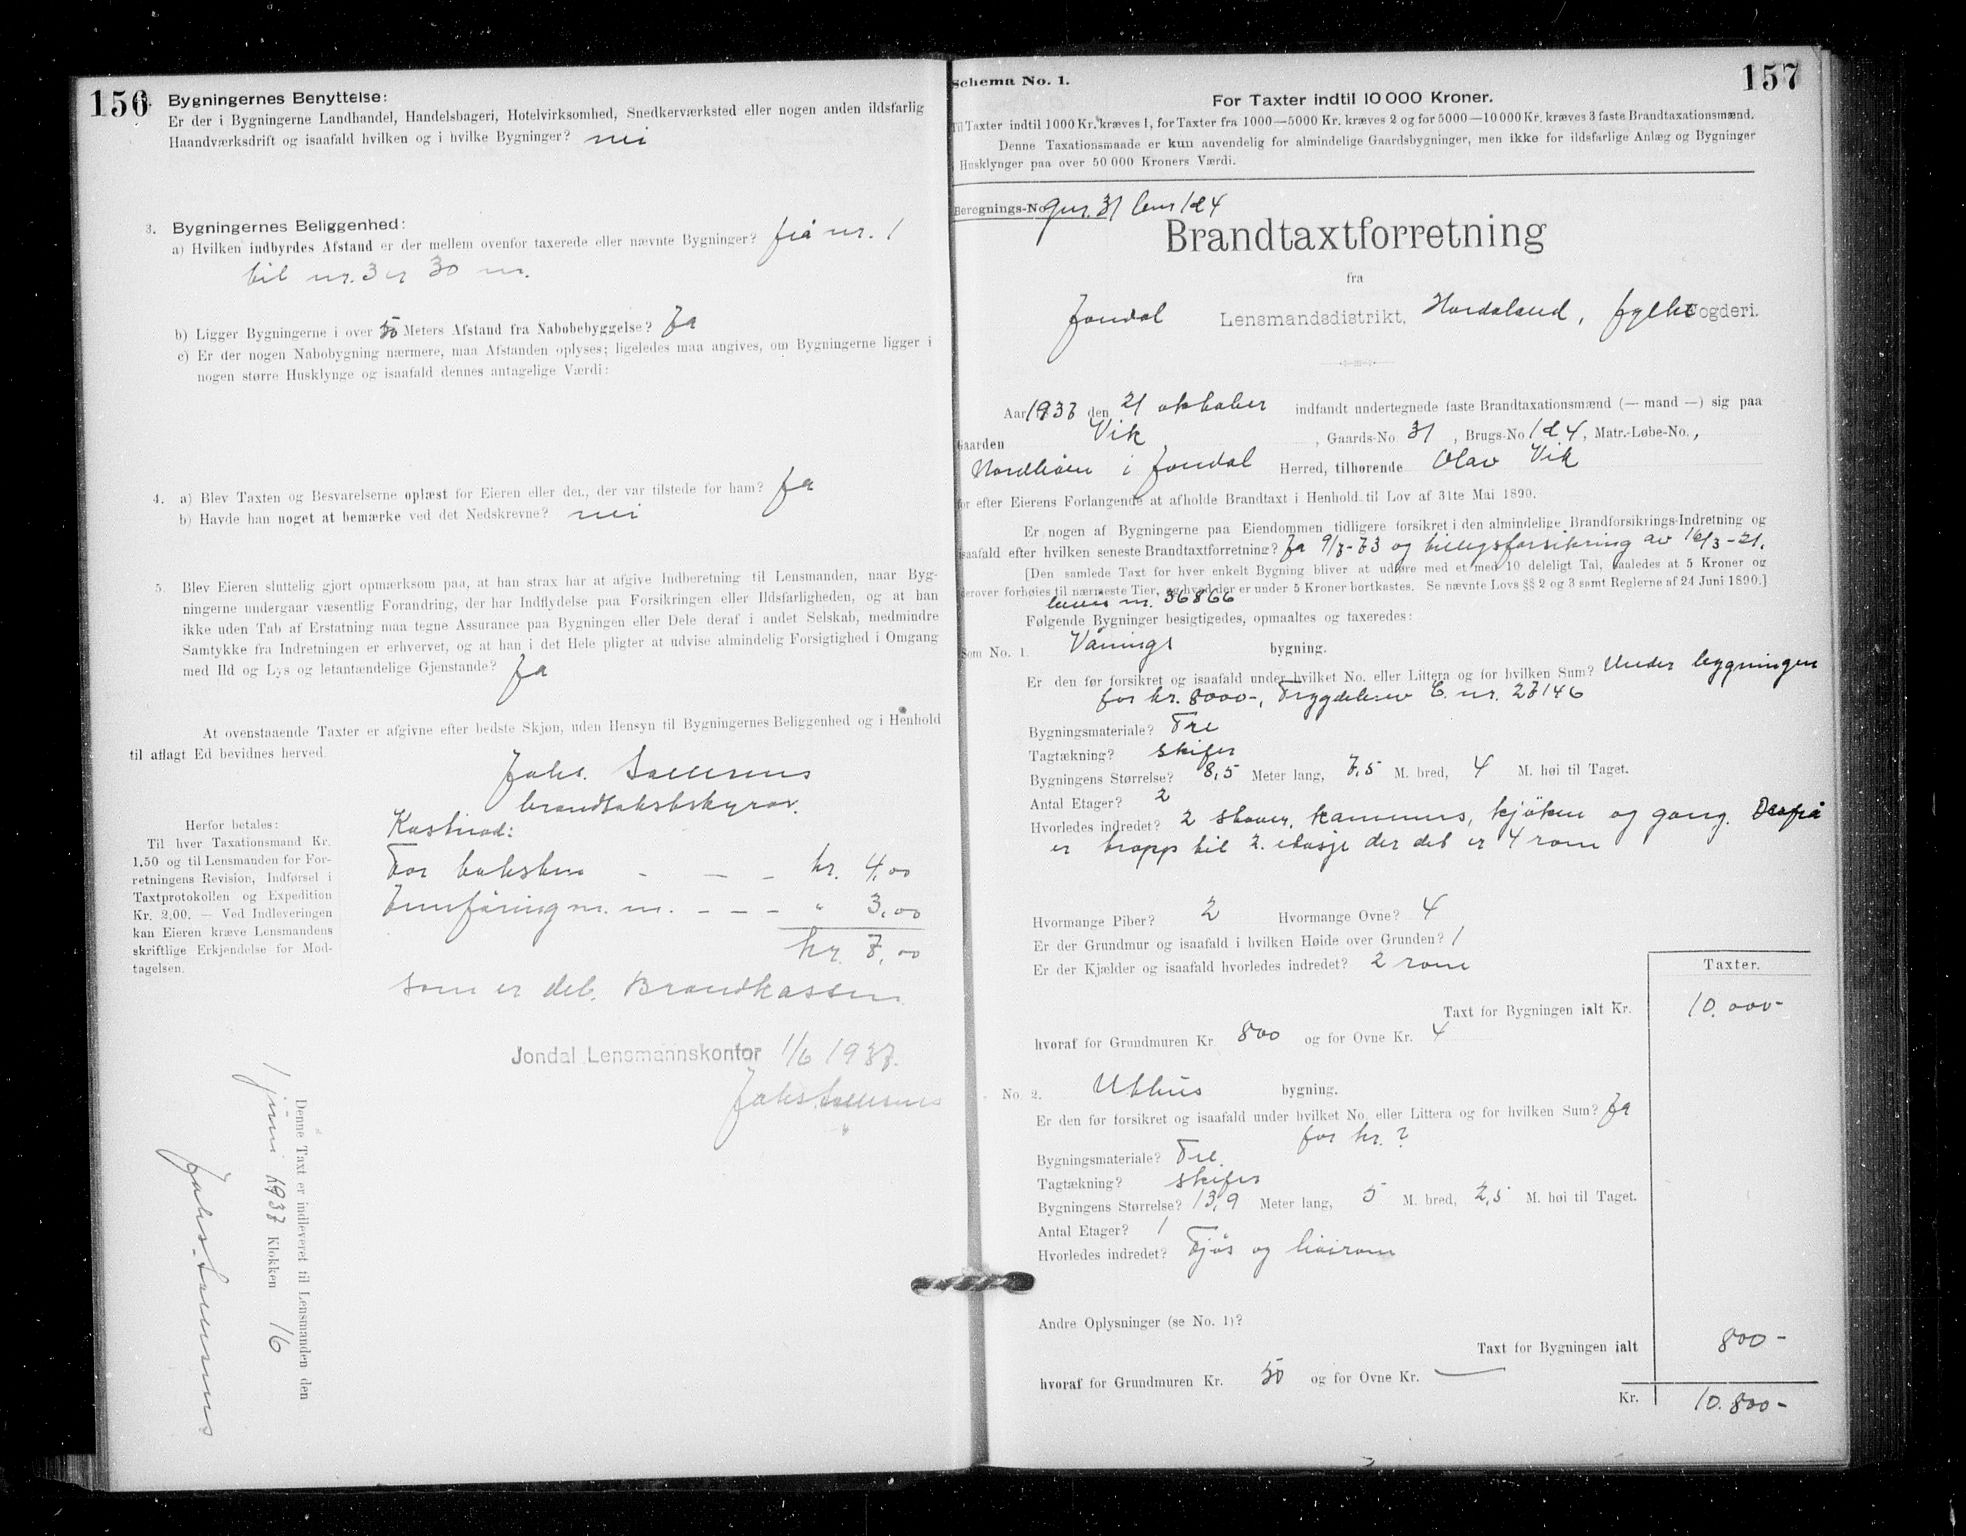 156
Bygningernes Benyttelse:
Er der i Bygningerne Landhandel, Handelsbageri, Hotelvirksomhed, Snedkerværksted eller nogen anden ildsfarlig
Haandværksdrift og isaafald hvilken og i hvilke Bygninger? nei
3. Bygningernes Beliggenhed:
a) Hvilken indbyrdes Afstand er der mellem ovenfor taxerede eller nævnte Bygninger? frå nr. 1
til nr. 3 er 30 m.
b) Ligger Bygningerne i over 50 Meters Afstand fra Nabobebyggelse? Ja
c) Er der nogen Nabobygning nærmere, maa Afstanden oplyses; ligeledes maa angives, om Bygningerne ligger i
nogen større Husklynge og isaafald dennes antagelige Værdi:
4. a) Blev Taxten og Besvarelserne oplæst for Eieren eller den, der var tilstede for ham? Ja
b) Havde han noget at bemærke ved det Nedskrevne? nei
5. Blev Eieren sluttelig gjort opmærksom paa, at han strax har at afgive Indberetning til Lensmanden, naar Byg-
ningerne undergaar væsentlig Forandring, der har Indflydelse paa Forsikringen eller Ildsfarligheden, og at han
ikke uden Tab af Erstatning maa tegne Assurance paa Bygningen eller Dele deraf i andet Selskab, medmindre
Samtykke fra Indretningen er erhvervet, og at han i det Hele pligter at udvise almindelig Forsigtighed i Omgang
med Ild og Lys og letantændelige Gjenstande? Ja
At ovenstaaende Taxter er afgivne efter bedste Skjøn, uden Hensyn til Bygningernes Beliggenhed og i Henhold
til aflagt Ed bevidnes herved.
brandtakstskjønar.
Herfor betales:
Til hver Taxationsmand Kr.
1,50 og til Lensmanden for For-
retningens Revision, Indførsel i
Taxtprotokollen og Expedition
Kr. 2,00. — Ved Indleveringen
kan Eieren kræve Lensmandens
skriftlige Erkjendelse for Mod-
tagelsen.
Kostnad:
For taksten - - - kr. 4,00
Innføring m. m. - - - " 3,00
kr. 7,00
som er deb. Brandkassen
Jondal Lensmannskontor 1/6 1937.
Denne Taxt er indleveret til Lensmanden den
1 juni 1937 Klokken 16
157
Schema No. 1.
For Taxter indtil 10 000 Kroner.
Til Taxter indtil 1000 Kr. kræves 1, for Taxter fra 1000—5000 Kr. kræves 2 og for 5000—10 000 Kr. kræves 3 faste Brandtaxationsmænd.
Denne Taxationsmaade er kun anvendelig for almindelige Gaardsbygninger, men ikke for ildsfarlige Anlæg og Bygninger
i Husklynger paa over 50 000 Kroners Værdi.
Beregnings-No. gnr. 31 bnr 1 d 4
Brandtaxtforretning
fra
Jondal Lensmandsdistrikt, Hordaland, fylke Fogderi.
Aar 1937 den 21 oktober indfandt undertegnede faste Brandtaxationsmænd (— mand —) sig paa
Gaarden Vik, Gaards-No. 31, Brugs-No. 1 d 4, Matr.-Løbe-No.,
i Jondal Herred, tilhørende Olav Vik
for efter Eierens Forlangende at afholde Brandtaxt i Henhold til Lov af 31te Mai 1890.
Er nogen af Bygningerne paa Eiendommen tidligere forsikret i den almindelige Brandforsikrings-Indretning og
isaafald efter hvilken seneste Brandtaxtforretning? Ja 9/7-73 og tilleggsforsikring av 16/3-21.
[Den samlede Taxt for hver enkelt Bygning bliver at udføre med et med 10 deleligt Tal, saaledes at 5 Kroner og
derover forhøies til nærmeste Tier, og hvad der er under 5 Kroner bortkastes. Se nævnte Lovs §§ 2 og 3 samt Reglerne af 24 Juni 1890.]
nr. 36866
Følgende Bygninger besigtigedes, opmaaltes og taxeredes:
Som No. 1. Vånings bygning.
Er den før forsikret og isaafald under hvilket No. eller Littera og for hvilken Sum? Under bygningen
for kr. 8000-, Trygdebrev E. nr. 27146
Bygningsmateriale? Tre
Tagtækning? skifer
Bygningens Størrelse? 8,5 Meter lang, 7,5 M. bred, 4 M. høi til Taget.
Antal Etager? 2
Hvorledes indredet? 2 stover, kammers, kjøken og gang. Derfrå
er tropp til 2. etasje der det er 4 rom
Hvormange Piber? 2 Hvormange Ovne? 4
Er der Grundmur og isaafald i hvilken Høide over Grunden? 1
Er der Kjælder og isaafald hvorledes indredet? 2 rom
Taxter.
Taxt for Bygningen ialt Kr. 10.000-
hvoraf for Grundmuren Kr. 800 og for Ovne Kr. 4
No. 2. Uthus bygning.
Er den før forsikret og isaafald under hvilket No. eller Littera og for hvilken Sum? Ja
for kr. ?
Bygningsmateriale? Tre.
Tagtækning? skifer
Bygningens Størrelse? 13,9 Meter lang, 5 M. bred, 2,5 M. høi til Taget.
Antal Etager? 1
Hvorledes indredet? Fjøs og høirom
Andre Oplysninger (se No. 1)?
Taxt for Bygningen ialt 800-
hvoraf for Grundmuren Kr. 50 og for Ovne Kr. —
Kr. 10.800-